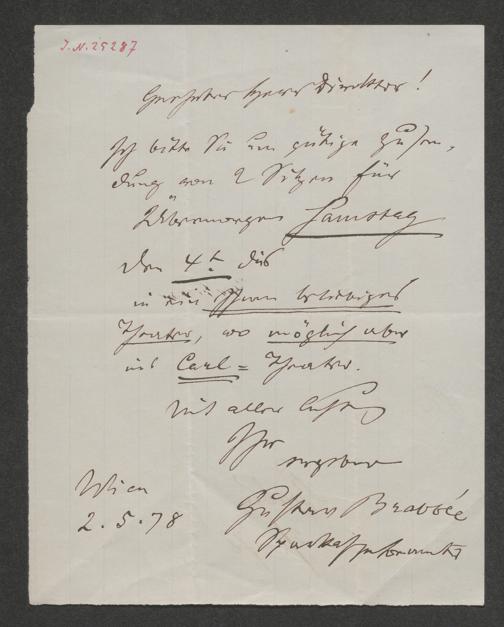 I.N. 25287
Geehrter Herr Direktor!
Ich bitte Sie um gütige Zusen-
dung von 2 Sitzen für
Übermorgen Samstag
den 4t. dis
in ein Ihnen beliebiges
Theater, wo möglich aber
ins Carl = Theater.
Mit aller Achtung
Ihr
ergebener
Wien
2.5.78
Gustav Brabbée
Sparkassebeamter